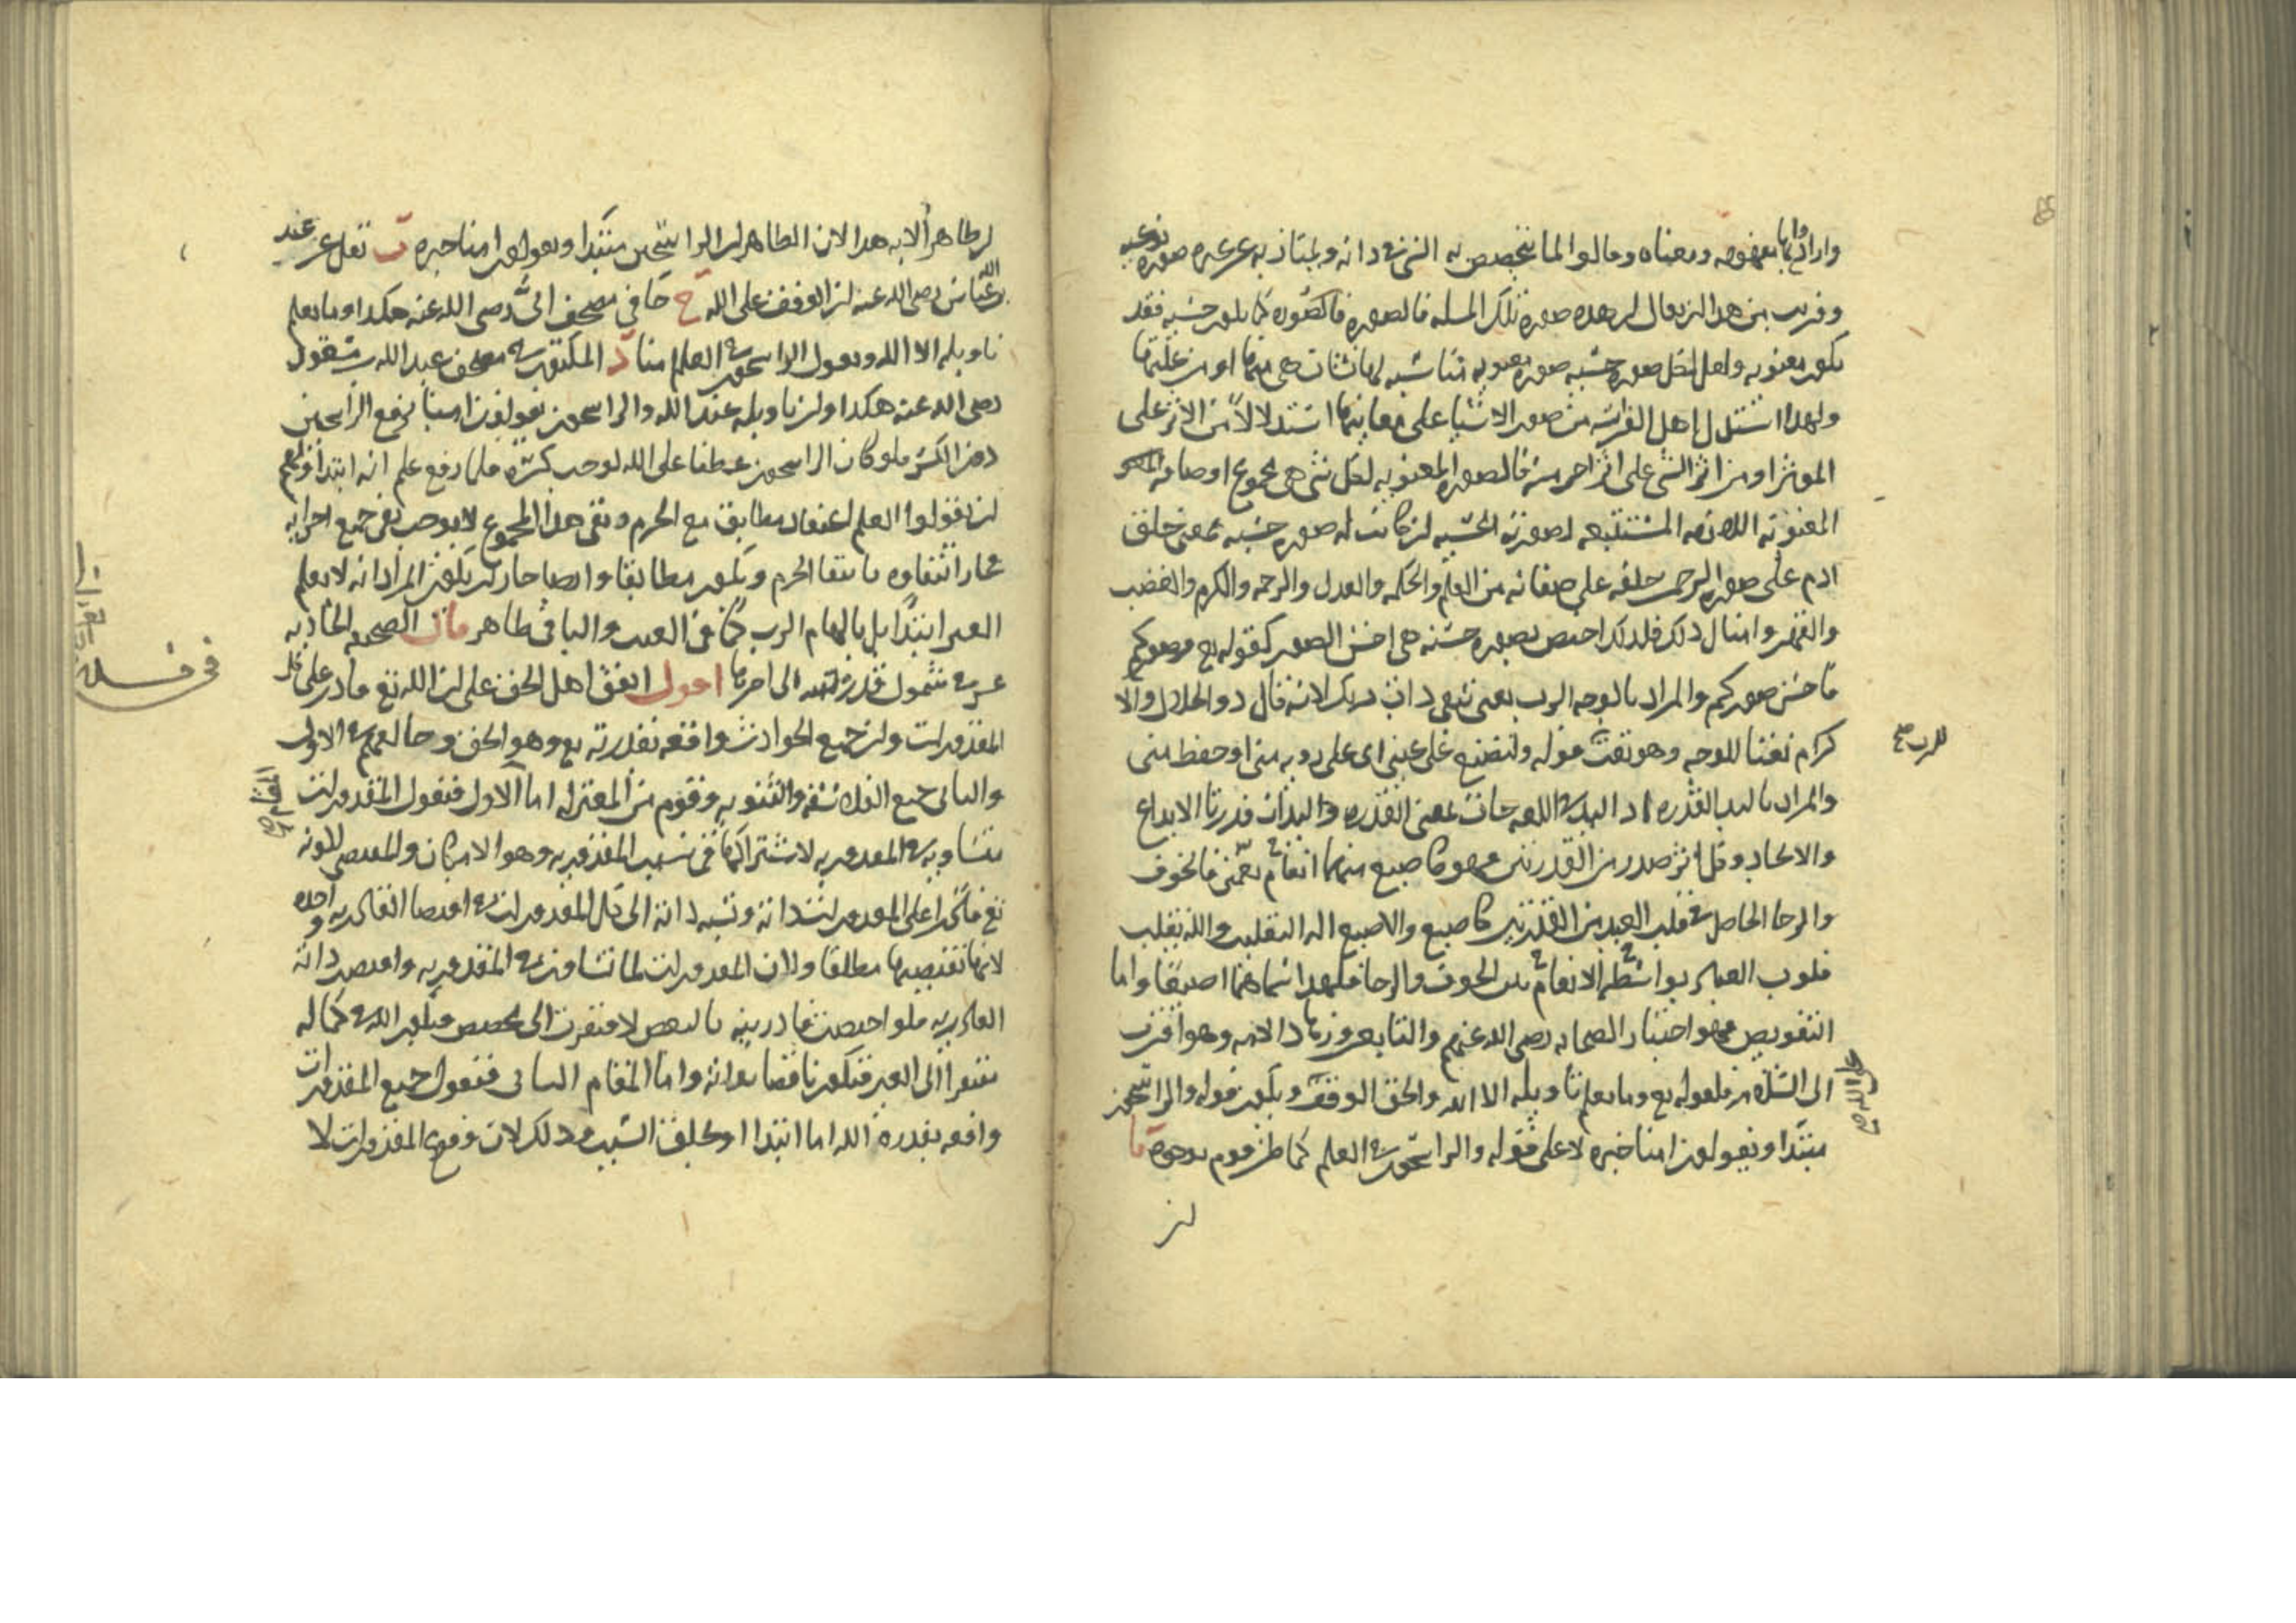 وارادوا بها مفهومه ومعناه وقالوا لما يتخصص به الشى فى ذاته ويمتاز به عن غيره صوره نوعيه
وقريب من هذا ان يقال ان هذه صورة تلك المسله فالصوره كما تكون حسيه فقد
تكون معنويه ولعل لكل صوره حسيه صوره معنويه تناسبه
ولهذا استدل اهل الفراسه من صور الاشيا على معانيها استدلالا من الاثر على
الموثر او من اثر الشى على اثر اخر منه فالصوره المعنويه لكل شى هى مجموع اوصافه
المعنويه اللازمه المستتبعه لصورته الحسيه ان كانت له صوره حسيه فمعنى خلق
ادم على صوره الرحمن خلقه على صفاته من العلم والحكمه والعدل والرحمه والكرم والغضب
والقهر وامثال ذلك فلذلك اختص بصوره حسنه هى احسن الصور كقوله تع وصوركم
فاحسن صوركم والمراد بالوجه الرب يعنى تبقى ذات ربك لانه قال ذو الجلال والا
كرام نعتا للوجه وهو نعت قوله ولتصنع على عينى اى على رويه منى او حفظ منى
للرب صح
والمراد باليد القدره اذ اليد فى اللغه جات بمعنى القدره واليدان قدرتا الابداع
والايجاد وكل اثر صدر من القدرتين فهو كاصبع منهما
والرجا الحاصل فى قلب العبد من القدرتين كاصبع والاصبع اله التقليب والله يقلب
قلوب العباد بواسطة الانعام بين الخوف والرجا فلهذا سماهما اصبعا واما
التفويض فهو اختيار الصحابه رضى الله عنهم والتابعين وهو اقرب
الى السلامه لقوله تع وما يعلم تاويله الا الله والحق الوقف ويكون قوله والراسخون
مبتدا ويقولون امنا خبره لا على قوله والراسخون فى العلم كما ظن قوم بوجوه ا
ان
ان ظاهر الايه هذا لان الظاهر ان الراسخين مبتدا ويقولون امنا خبره ب نقل عن عبد الله
بن عباس رضى الله عنه ان الوقف على الله ج جا فى مصحف ابى رضى الله عنه هكذا وما يعلم
تاويله الا الله ويقول الراسخون فى العلم امنا د المكتوب فى مصحف عبد الله بن مسعود
رضى الله عنه هكذا وان تاويله عند الله والراسخون يقولون امنا برفع الراسخين
دون الكسر فلو كان الراسخون عطفا على الله لوجب كسره فلما رفع علم انه ابتدا
ان يقولوا العلم اعتقاد مطابق مع الجزم ونفى هذا المجموع لا يوجب نفى جميع اجزايه
فجاز انتفاوه بانتفا الجزم ويكون مطابقا وايضا جاز ان يكون المراد انه لا يعلم
الغير ابتدا بل بالهام الرب كما فى الغيب والباقى ظاهر قال الصحيفه الحاديه
عشر فى شمول قدرته الى اخرها اقول اتفق اهل الحق على ان الله تع قادر على كل
المقدورات وان جميع الحوادث واقعه بقدرته تع وهو الحق وخالفهم فى الاول
والثانى جميع الفلاسفه والثنويه وقوم من المعتزله اما الاول فنقول المقدورات
متساويه فى المقدوريه لاشتراكها فى سبب المقدوريه وهو الامكان والمقتضى لكونه
تع قادرا على المقدورات ذاته ونسبه ذاته الى كل المقدورات فى اقتضا القادريه واحده
لانها تقتضيها مطلقا ولان المقدورات لما تساوت فى المقدوريه واقتضت ذاته
القادريه فلو اختصت قادريته بالبعض لافتقرت الى مخصص فيكون الله فى كماله
مفتقرا الى الغير فيكون ناقصا بذاته واما المقام الثانى فنقول جميع المقدورات
واقعه بقدره الله اما ابتدا او بخلق السبب وذلك لان وقوع المقدورات لا